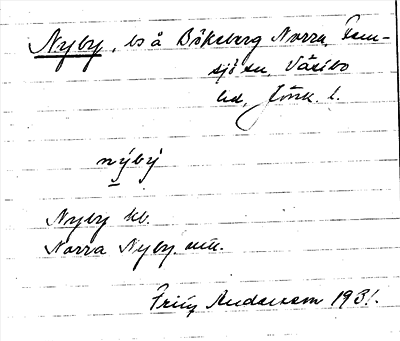 Nyby, bs å Bökeberg Norra, Fem-
sjö sn, Västbo
hd, Jönk. l.
nýby̆
Nyby kb.
Norra Nyby mtl.
Frits Andersson 1931.